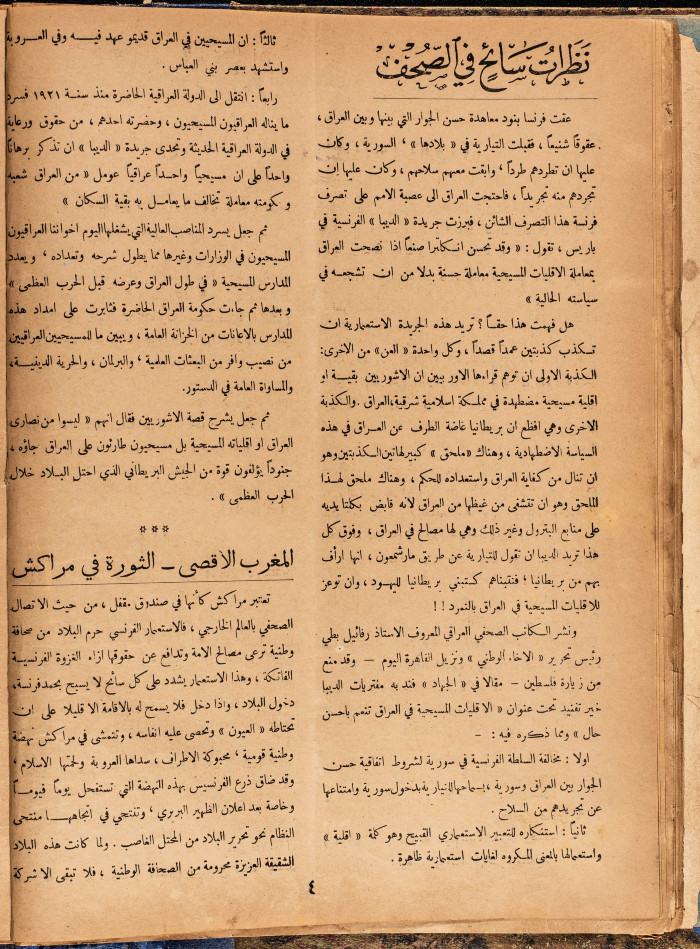 نَظَرَاتُ سَائِحٍ فِي الصُّحُفِ
عقت فرنسا بنود معاهدة حسن الجوار التي بينها وبين العراق ،
عقوقاً شنيعاً ، فقبلت التيارية في « بلادها » ، السورية ، وكان
عليها ان تطردهم طرداً ، وابقت معهم سلاحهم ، وكان عليها ان
تجردهم منه تجريداً ، فاحتجت العراق الى عصبة الامم على تصرف
فرنسة هذا التصرف الشائن ، فبرزت جريدة « الديبا » الفرنسية في
باريس ، تقول : « وقد تحسن انكلترا صنعاً اذا نصحت العراق
بمعاملة الاقليات المسيحية معاملة حسنة بدلا من ان تشجعه في
سياسته الحالية »
هل فهمت هذا حقاً ؟ تريد هذه الجريدة الاستعمارية ان
تكذب كذبتين عمداً قصداً ، وكل واحدة « العن » من الاخرى:
الكذبة الاولى ان توهم قراءها الاوربيين ان الاشوريين بقية او
اقلية مسيحية مضطهدة في مملكة اسلامية شرقية،العراق. والكذبة
الاخرى وهي افظع ان بريطانيا غاضة الطرف عن العراق في هذه
السياسة الاضطهادية ، وهناك «ملحق» كبيرلهاتين الكذبتين وهو
ان تنال من كفاية العراق واستعداده للحكم ، وهناك ملحق لهذا
الملحق وهو ان تتشفى من غيظها من العراق لانه قابض بكلتا يديه
على منابع البترول وغير ذلك وهي لها مصالح في العراق ، وفوق كل
هذا تريد الديبا ان تقول للتيارية عن طريق مارشمعون ، انها ارأف
بهم من بريطانيا ؛ فتتبناهم كتبني بريطانيا لليهود ، وان توعز
للاقليات المسيحية في العراق بالتمرد ! !
ونشر الكاتب الصحفي العراقي المعروف الاستاذ رفائيل بطي
رئيس تحرير « الاخاء الوطني » ونزيل القاهرة اليوم — وقد منع
من زيارة فلسطين — مقالا في « الجهاد » فند به مفتريات الديبا
خير تفنيد تحت عنوان « الاقليات المسيحية في العراق تنعم باحسن
حال » ومما ذكره فيه : -
اولا : مخالفة السلطة الفرنسية في سورية لشروط اتفاقية حسن
الجوار بين العراق وسورية ،بسماحها للتيارية بدخول سورية وامتناعها
عن تجريدهم من السلاح .
ثانياً : استنكاره للتعبير الاستعماري القبيح وهو كلمة « اقلية »
واستعمالها بالمعنى المكروه لغايات استعمارية ظاهرة .
ثالثاً : ان المسيحيين في العراق قديمو عهد فيه وفي العروبة
واستشهد بعصر بني العباس .
رابعاً : انتقل الى الدولة العراقية الحاضرة منذ سنة ١٩٢١ فسرد
ما يناله العراقيون المسيحيون ، وحضرته احدهم ، من حقوق ورعاية
في الدولة العراقية الحديثة وتحدى جريدة « الديبا » ان تذكر برهاناً
واحداً على ان مسيحياً واحداً عراقياً عومل « من العراق شعبه
وحكومته معاملة تخالف ما يعامل به بقية السكان »
ثم جعل يسرد المناصب العالية التي يشغلها اليوم اخواننا العراقيون
المسيحيون في الوزارات وغيرها مما يطول شرحه وتعداده ، ويعدد
المدارس المسيحية « في طول العراق وعرضه قبل الحرب العظمى »
وبعدها ثم جاءت حكومة العراق الحاضرة فثابرت على امداد هذه
المدارس بالاعانات من الخزانة العامة ، ويبين ما للمسيحيين العراقيين
من نصيب وافر من البعثات العلمية ، والبرلمان ، والحرية الدينية،
والمساواة العامة في الدستور.
ثم جعل يشرح قصة الاشوريين فقال انهم « ليسوا من نصارى
العراق او اقلياته المسيحية بل مسيحيون طارئون على العراق جاؤه ،
جنوداً يؤلفون قوة من الجيش البريطاني الذي احتل البلاد خلال
الحرب العظمى » .
* * *
المغرب الاقصى — الثورة في مراكش
تعتبر مراكش كأنها في صندوق مقفل ، من حيث الاتصال
الصحفي بالعالم الخارجي ، فالاستعمار الفرنسي حرم البلاد من صحافة
وطنية ترعى مصالح الامة وتدافع عن حقوقها ازاء الغزوة الفرنسية
الفاتكة ، وهذا الاستعمار يشدد على كل سائح لا يسبح بحمد فرنسة،
دخول البلاد ، واذا دخل فلا يسمح له بالاقامة الا قليلا على ان
تحتاطه « العيون » وتحصى عليه انفاسه ، وتتمشى في مراكش نهضة
وطنية قومية ، محبوكة الاطراف ، سداها العروبة ولحمتها الاسلام ،
وقد ضاق ذرع الفرنسيس بهذه النهضة التي تستفحل يوماً فيوماً
وخاصة بعد اعلان الظهير البربري ، وتنتحي في اتجاهها منتحى
النظام نحو تحرير البلاد من المحتل الغاصب . ولما كانت هذه البلاد
الشقيقة العزيزة محرومة من الصحافة الوطنية ، فلا تبقى الا شركة
٤